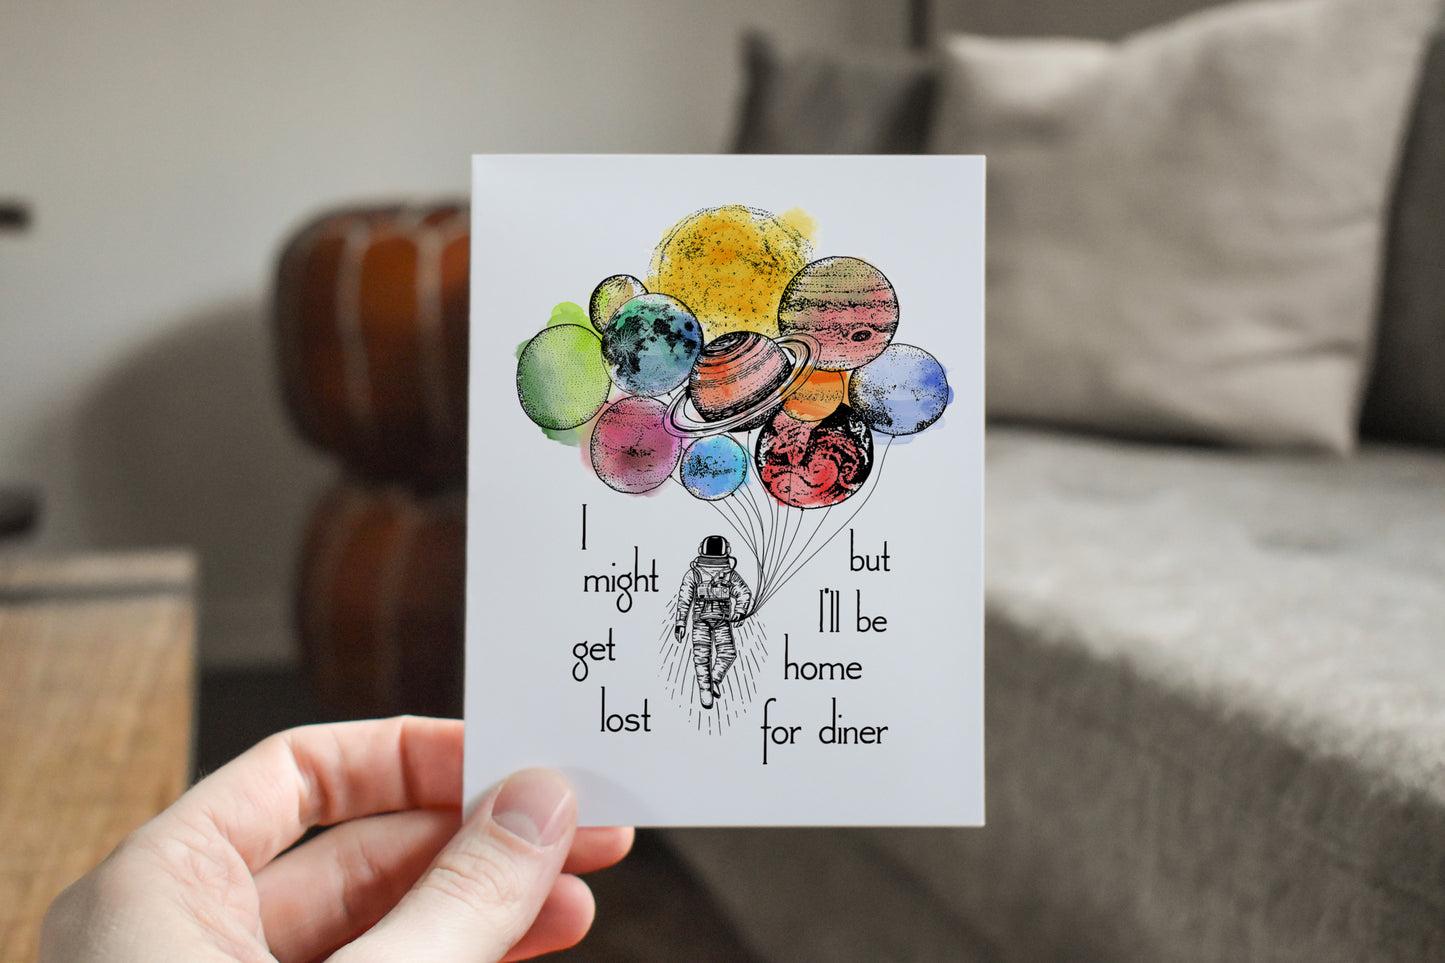 I
might
get
lost
but
I'll be
home
for diner